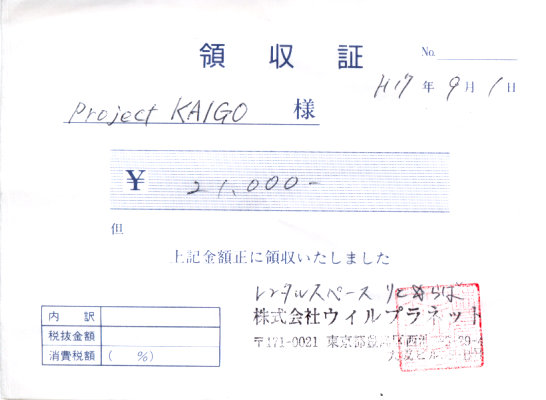 領収証
No.
H17年9月1日
Project KAIGO 様
¥ 21,000-
但
上記金額正に領収いたしました
レンタルスペース
株式会社ウィルプラネット
内訳
税抜金額
消費税額 ( %)
〒171-0021 東京都豊島区西